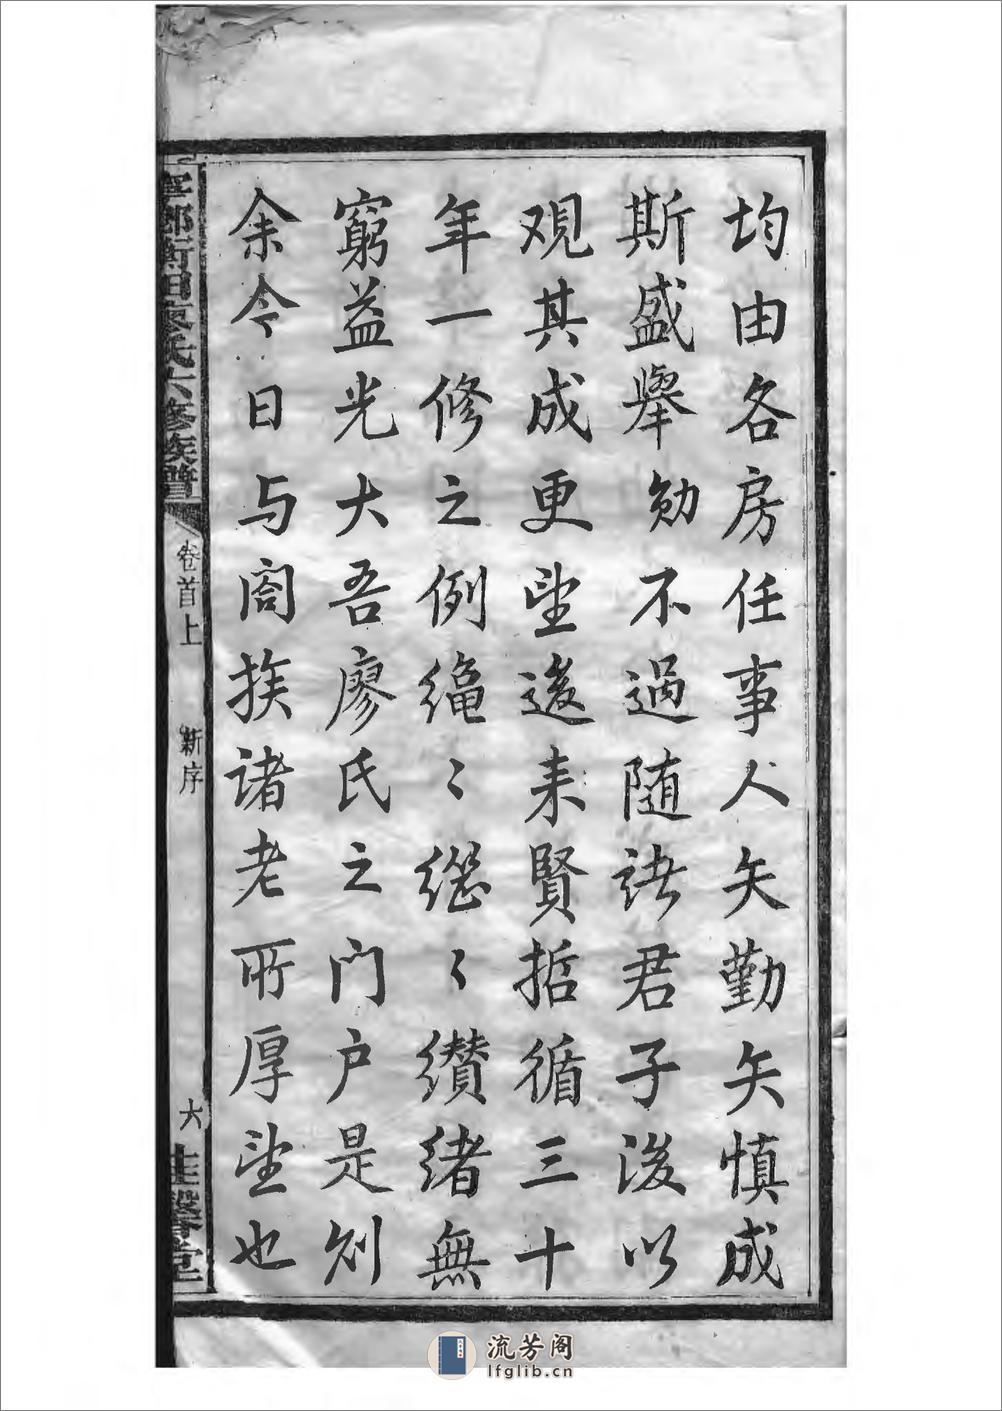 均由各房任事人矢勤矢慎成
斯盛舉勉不過随諸君子後以
观其成更望後来賢哲循三十
年一修之例绳〻继〻缵绪無
窮益光大吾廖氏之门户是则
余今日与阖族诸老所厚望也
寧鄉衡田廖氏六修族譜
卷首上
新序
六
桂馨堂
流芳阁
lfglib.cn